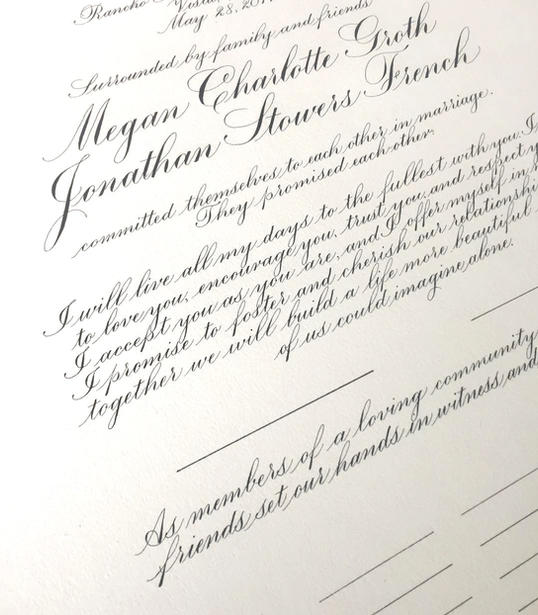 Rancho
May 28, 201
Surrounded by family and friends
Megan Charlotte Groth
Jonathan Stowers French
committed themselves to each other in marriage.
They promised each other:
I will live all my days to the fullest with you. I
to love you, encourage you, trust you, and respect
I accept you as you are, and I offer myself in
I promise to foster and cherish our
together we will build a life more beautiful
of us could imagine alone.
As members of a loving community
friends set our hands in witness and